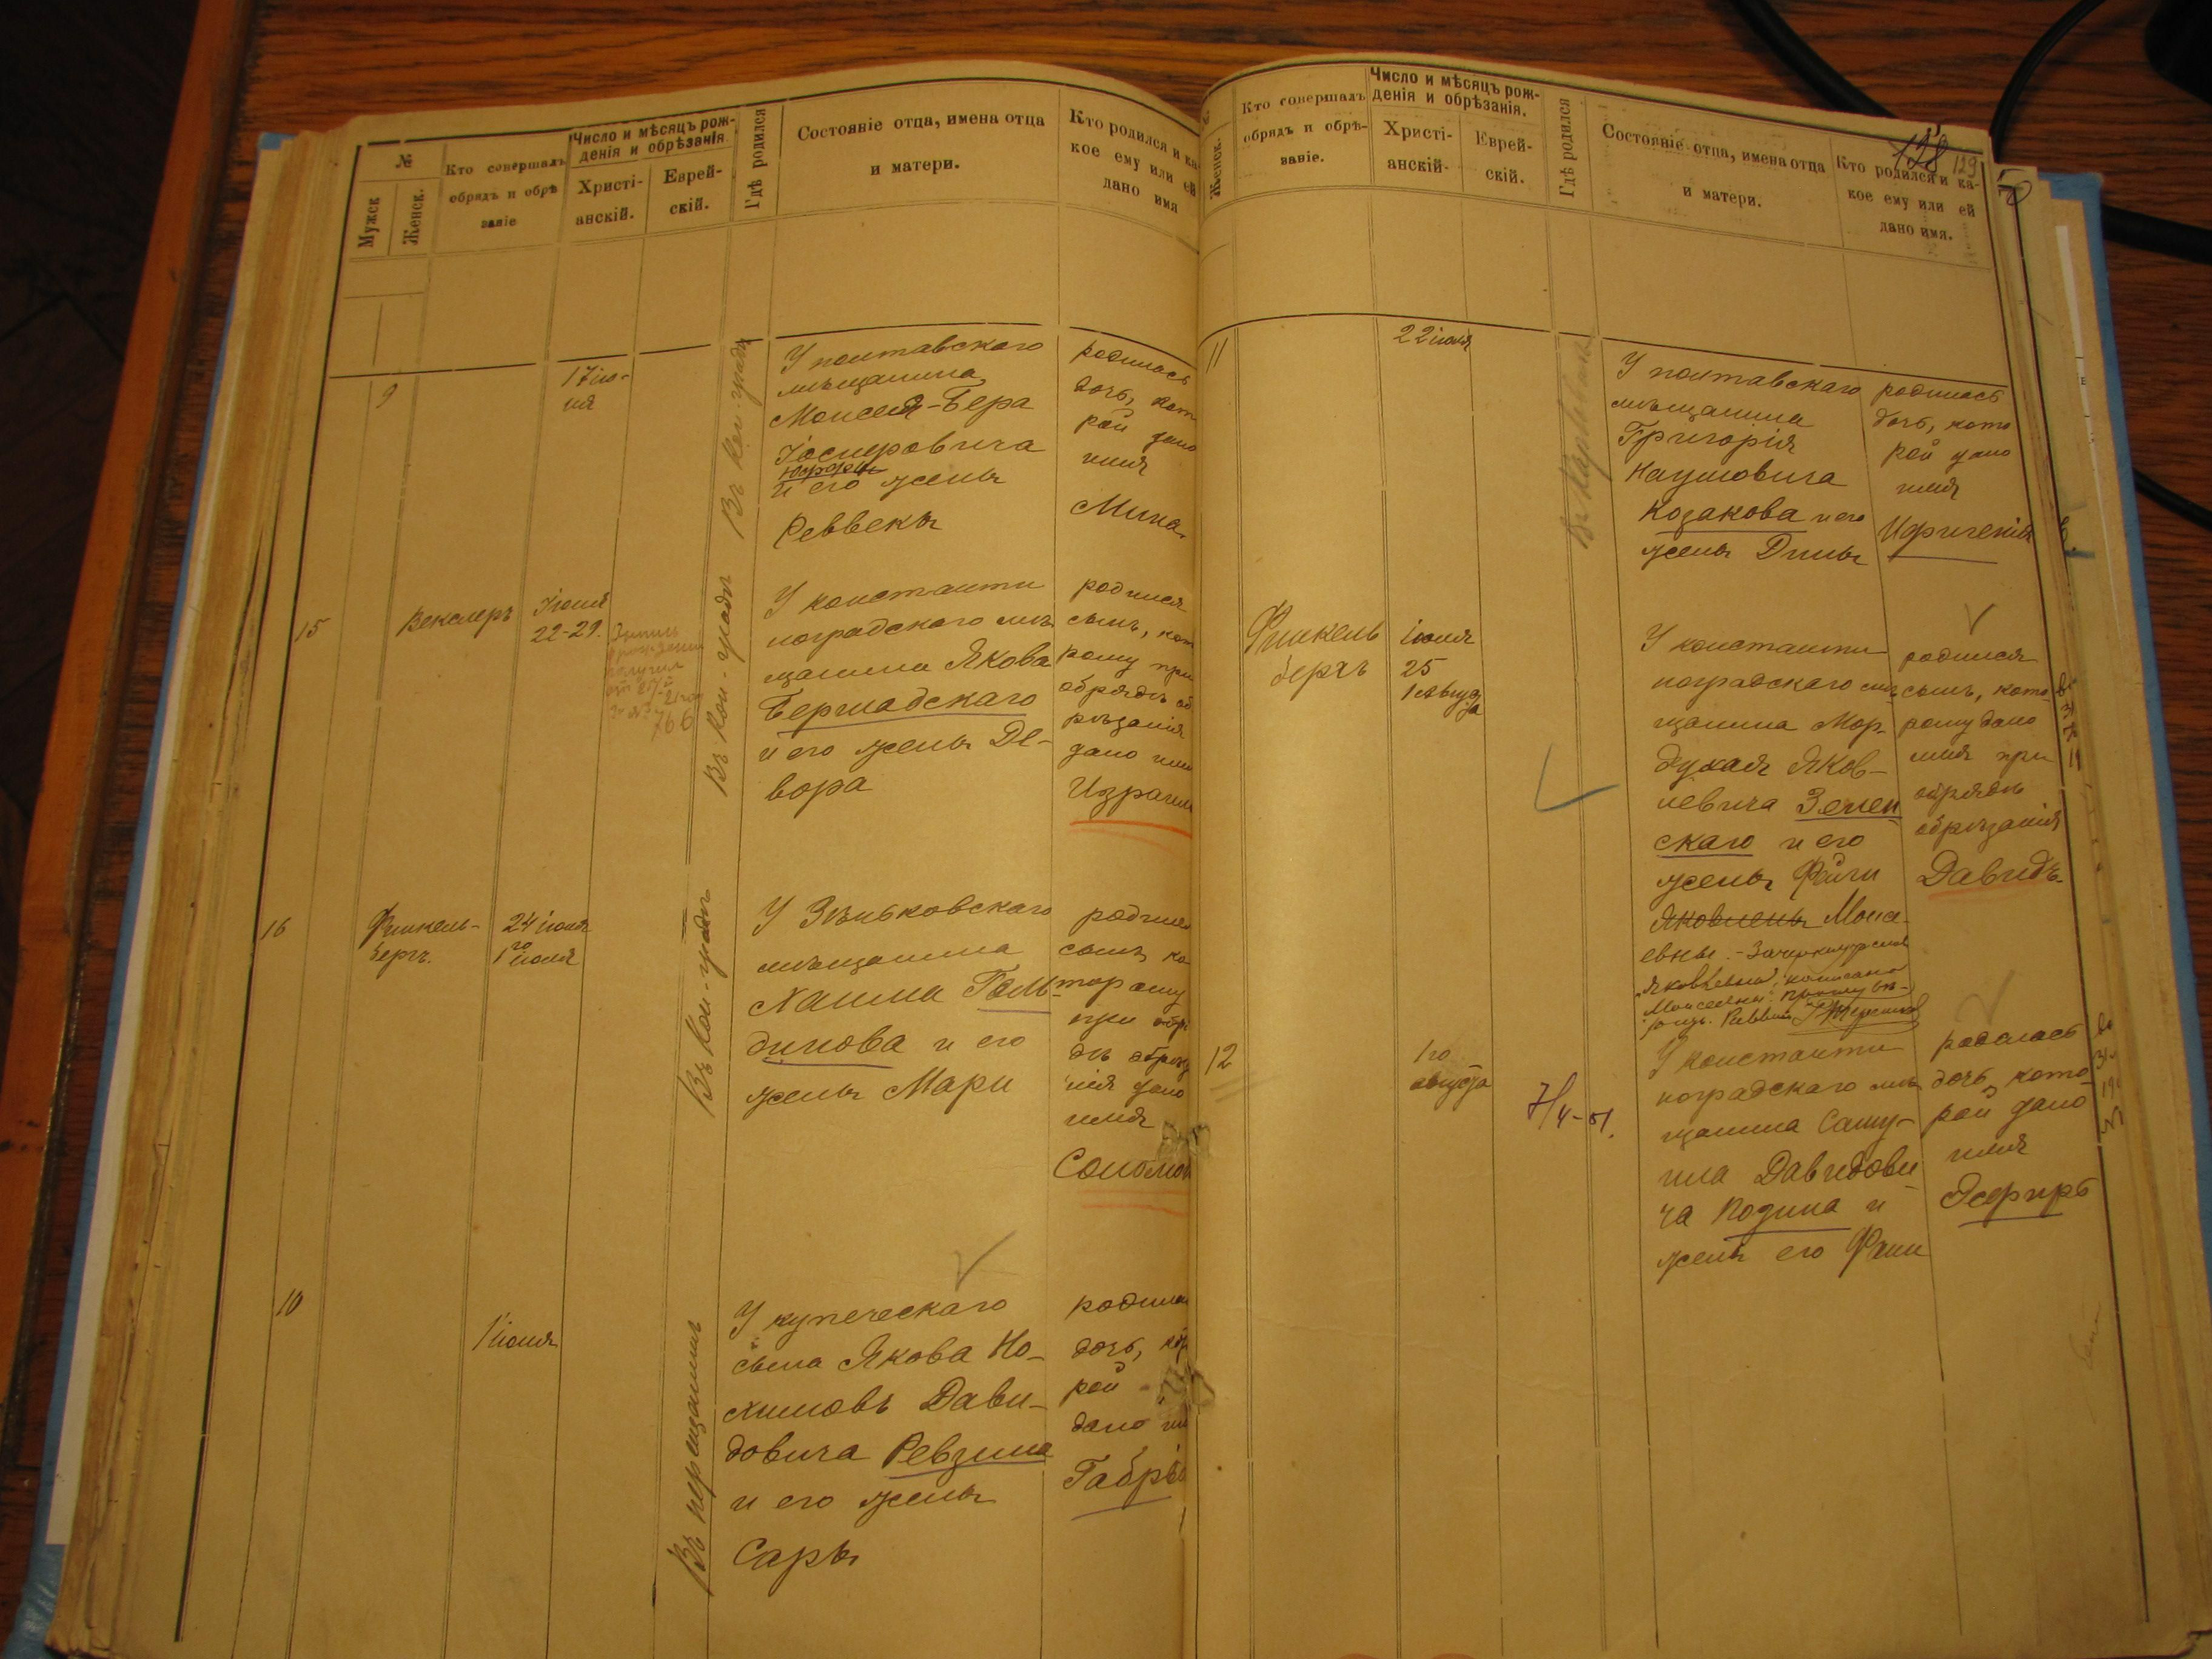 №
Мужск
Женск.
Кто совершалъ
обрядъ и обрѣ
заніе
Число и мѣсяцъ рож-
денія и обрѣзанія
Христі-
анскій.
Еврей-
скій.
Гдѣ родился
Состояніе отца, имена отца
и матери.
Кто родился и ка-
кое ему или ей
дано имя
9
17 iю-
ня
Въ Кон. градѣ
У полтавскаго
мѣщанина
Моисея-Бера
Іосифовича
и его жены
Реввеки
родилась
дочь, кот
рой дано
имя
Мина.
15
Векслеръ
Іюня
22-29.
766
Въ Кон-градѣ
У константи
ноградскаго мѣ
щанина Якова
Бершадскаго
и его жены Де-
вора
родился
сынъ, кот
рому при
обрядѣ об
рѣзанія
дано имя
Израиль
16
Финкель-
бергъ.
24 іюня
1го іюля
Въ Кон-градѣ
У Зѣньковскаго
мѣщанина
Хаима Голь-
динова и его
жены Мари
родился
сынъ ко
торому
при обря
дѣ обрѣза
нія дано
имя
Соломон
10
1 іюля
Въ Перещепинѣ
У купеческаго
сына Якова Но-
химовъ Дави-
довича Ревзина
и его жены
Сары
родилась
дочь, кот
рой
дано им
Габрі
Женск.
Кто совершалъ
обрядъ и обрѣ-
заніе.
Число и мѣсяцъ рож-
денія и обрѣзанія.
Христі-
анскій-
Еврей-
скій.
Гдѣ родился
Состояніе отца, имена отца
и матери.
Кто родился и ка-
кое ему или ей
дано имя.
128
129
11
22 іюля
У полтавскаго
мѣщанина
Григорія
Наумовича
Козакова и его
жены Дины
родилась
дочь, кото
рой дано
имя
Ифигенія
Финкель
бергъ
іюля
25
1 августа
У константи
ноградскаго мѣ
щанина Мор-
духая Яков-
левича Зелен
скаго и его
жены Фейги
Яковлены Моисе-
евны. - Зачеркнутое
"Яковлевна", написано
Моисеевны.
родился
сынъ, кото-
рому дано
имя при
обрядѣ
обрѣзанія
Давидъ.
12
1го
августа
У константи
ноградскаго мѣ
щанина Саму-
ила Давидови
ча Подина и
жены его Фани
родилась
дочь, кото-
рой дано
имя
Эсфирь